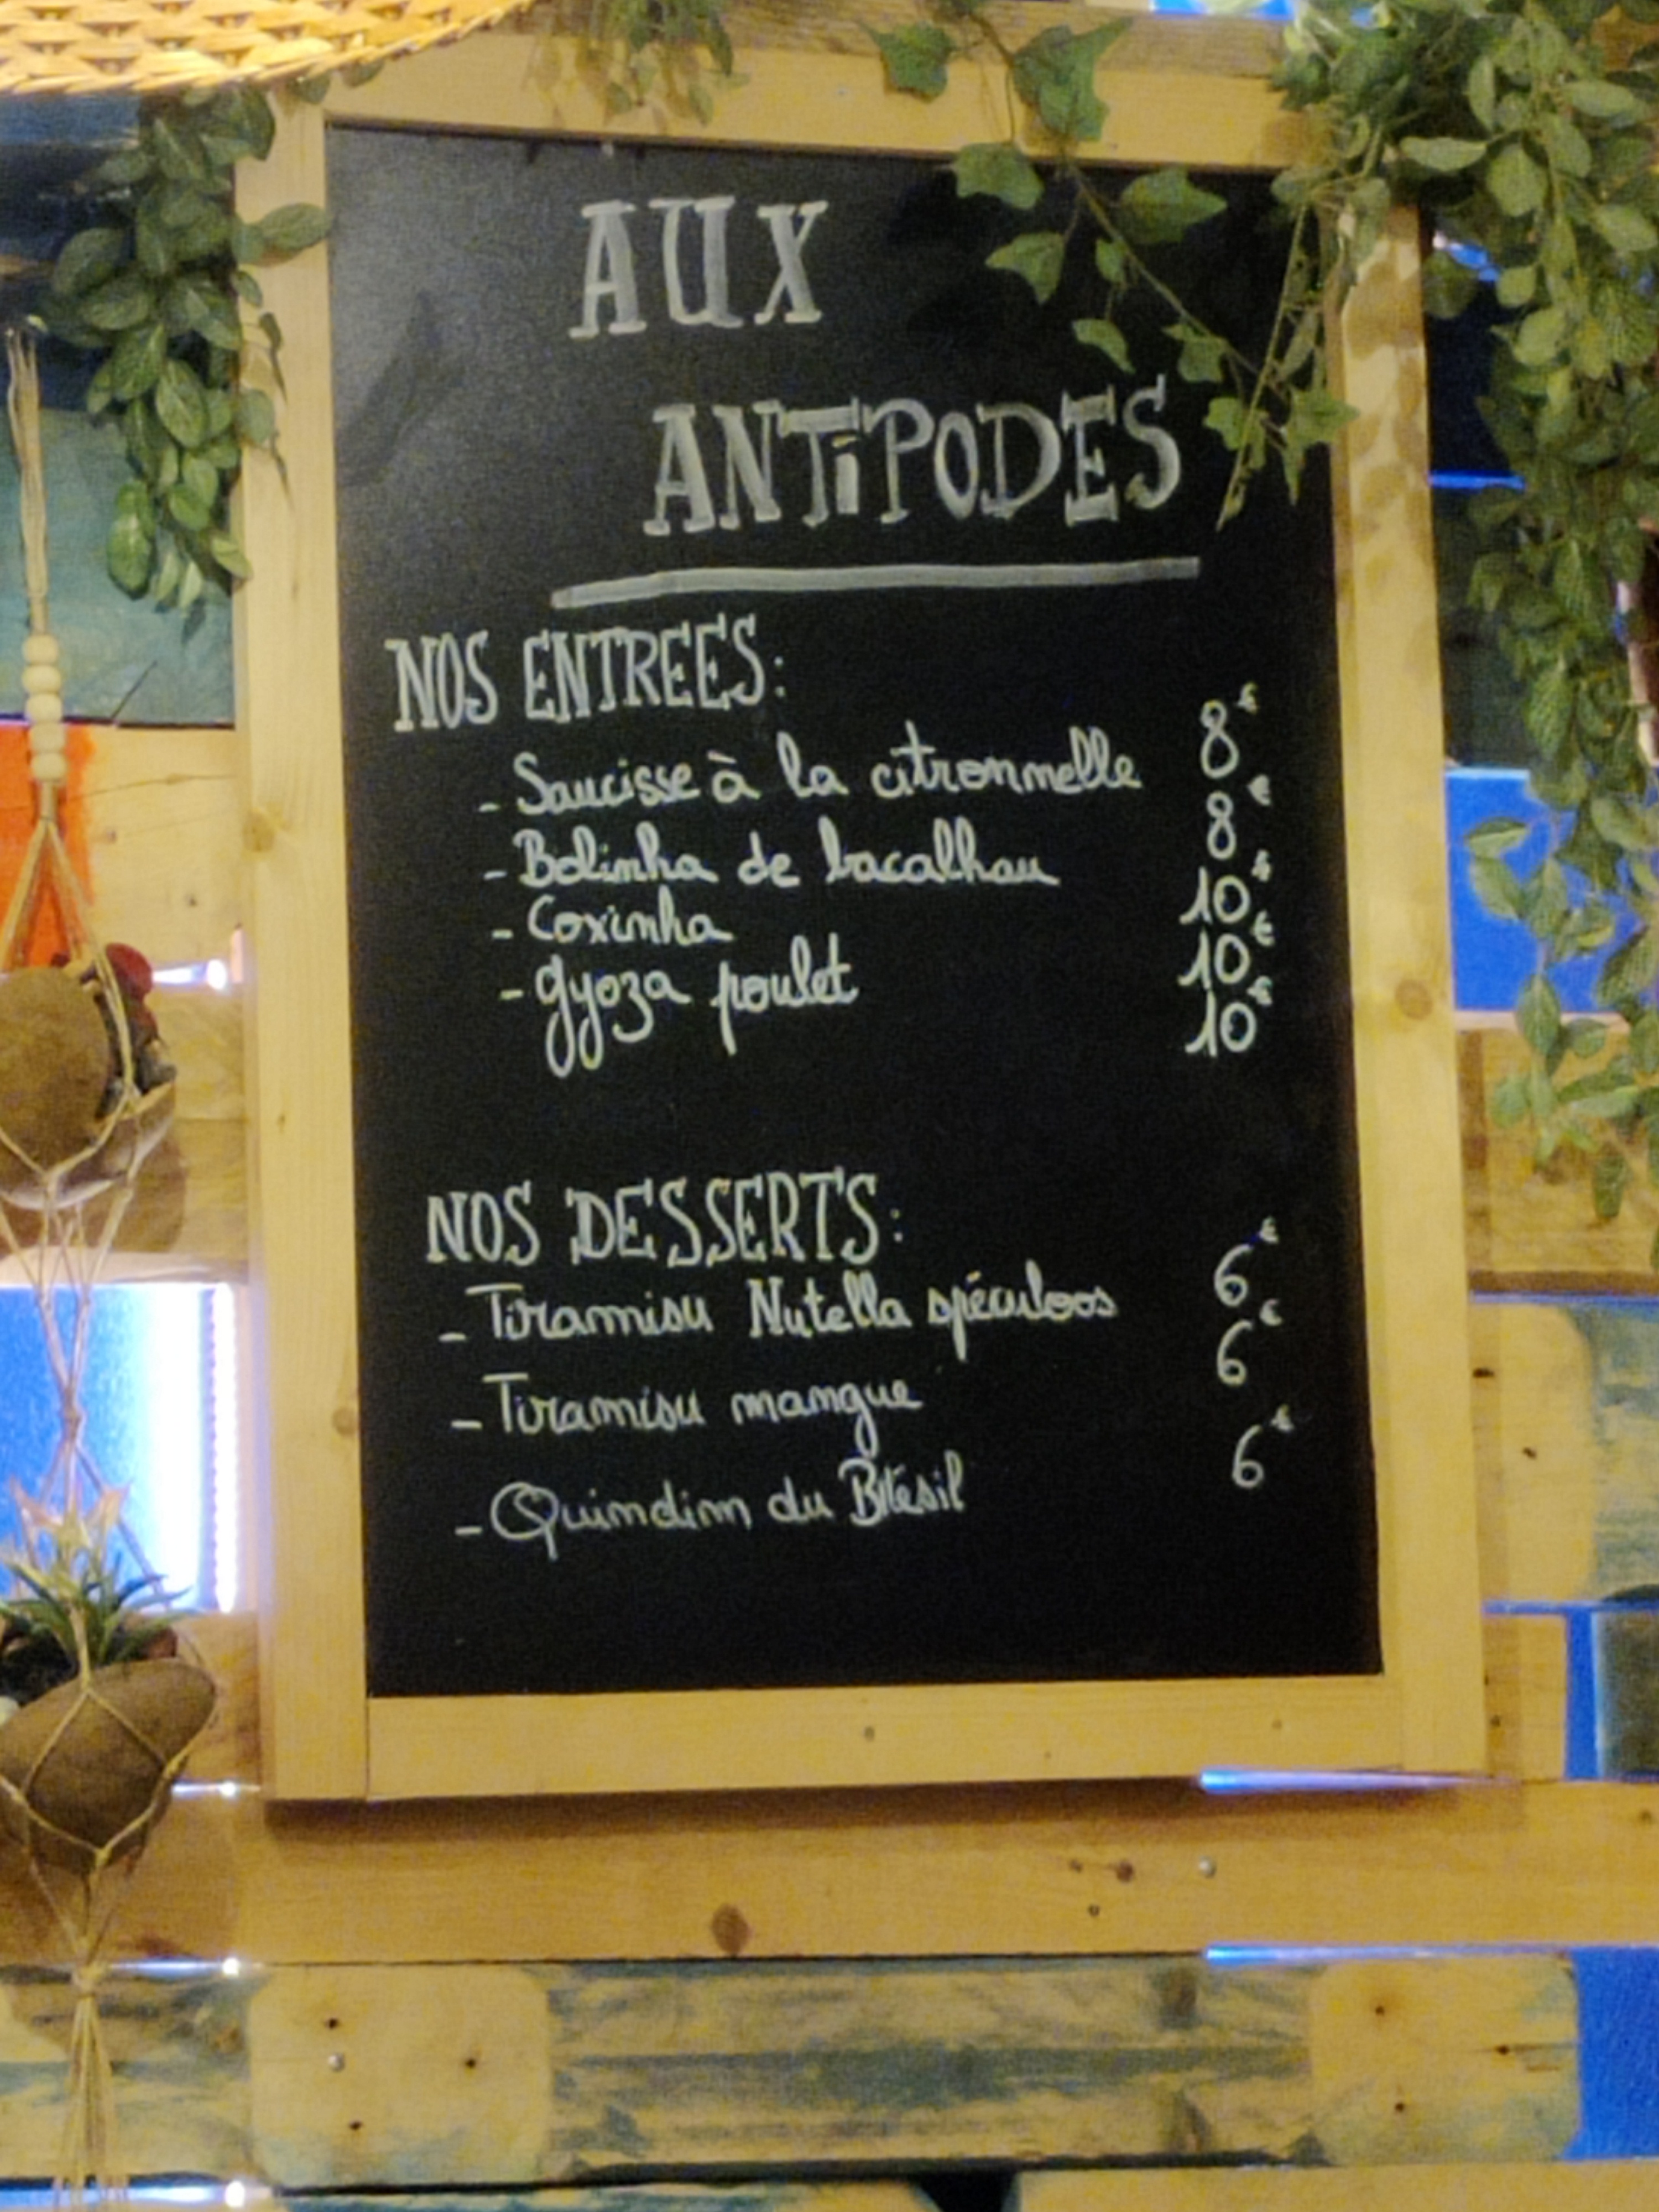 AUX
ANTIPODES
NOS ENTREES:
- Saucisse à la citronnelle 8€
- Bolinha de bacalhau 8€
- Coxinha 10€
- gyoza poulet 10€
10€
NOS DESSERTS:
- Tiramisu Nutella spéculoos 6€
- Tiramisu mangue 6€
- Quindim du Brésil 6€